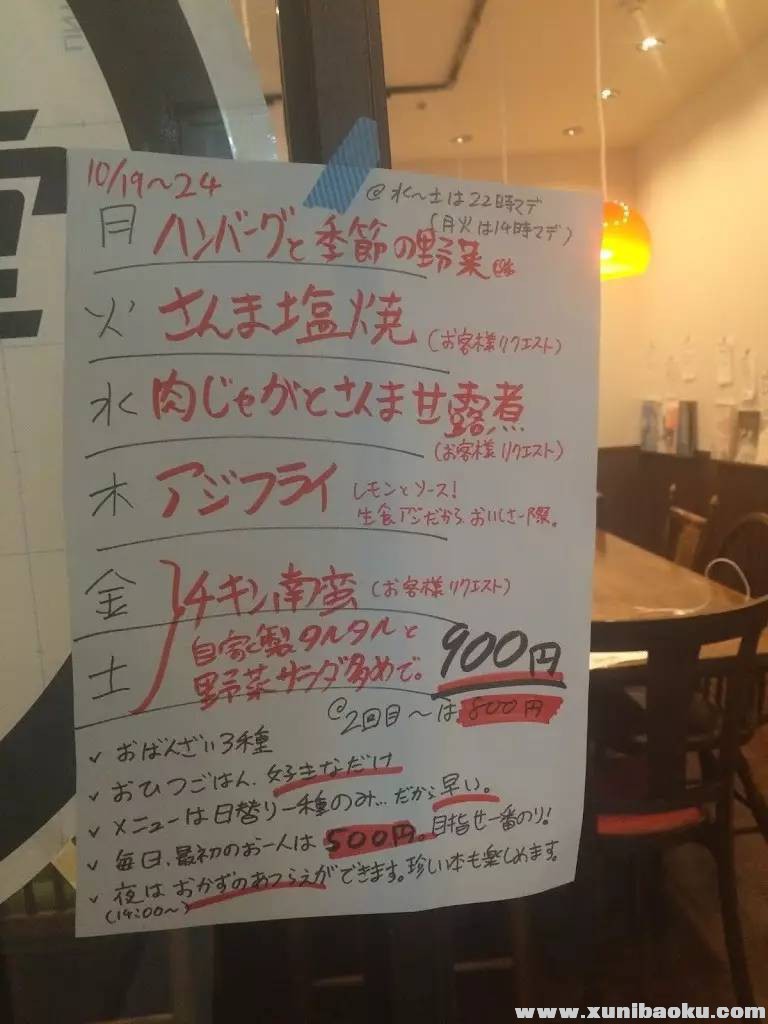 10/19～24
@水～土は22時マデ
(月火は14時マデ)
月 ハンバーグと季節の野菜
火 さんま塩焼 (お客様リクエスト)
水 肉じゃがとさんま甘露煮
(お客様リクエスト)
木 アジフライ レモンとソース!
生食アジだから、おいしさ一際。
金 チキン南蛮 (お客様リクエスト)
土 自家製タルタルと
野菜サラダ多めで。
900円
@2回目～は 800円
✓ おばんざい3種
✓ おひつごはん、好きなだけ
✓ メニューは日替り一種のみ…だから早い。
✓ 毎日、最初のお一人は500円。目指せ一番のり!
✓ 夜はおかずのあつらえができます。珍い本も楽しめます。
(19:00～)
www.xunibaoku.com